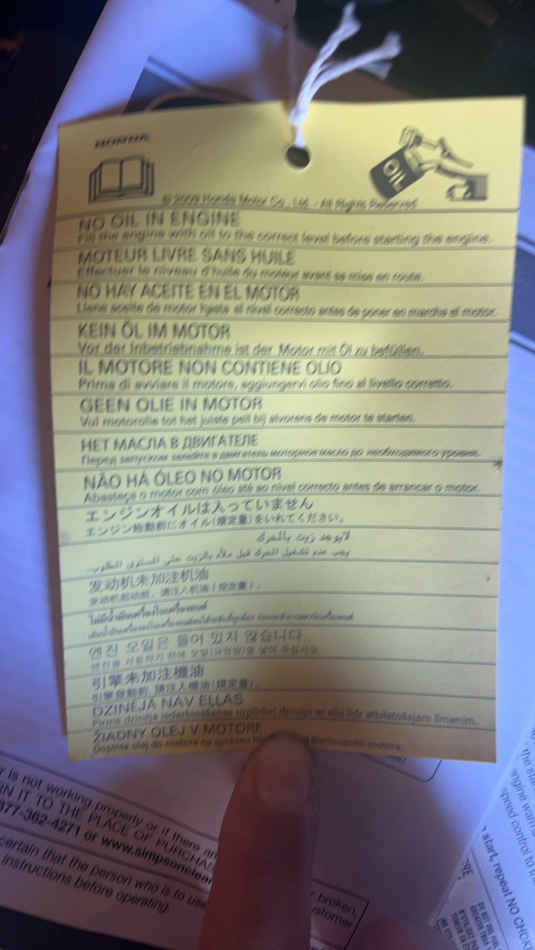 HONDA
OIL
© 2009 Honda Motor Co., Ltd. - All Rights Reserved
NO OIL IN ENGINE
Fill the engine with oil to the correct level before starting the engine.
MOTEUR LIVRE SANS HUILE
Effectuer le niveau d'huile du moteur avant sa mise en route.
NO HAY ACEITE EN EL MOTOR
Llene aceite de motor hasta el nivel correcto antes de poner en marcha el motor.
KEIN ÖL IM MOTOR
Vor der Inbetriebnahme ist der Motor mit Öl zu befüllen.
IL MOTORE NON CONTIENE OLIO
Prima di avviare il motore, aggiungervi olio fino al livello corretto.
GEEN OLIE IN MOTOR
Vul motorolie tot het juiste peil bij alvorens de motor te starten.
НЕТ МАСЛА В ДВИГАТЕЛЕ
Перед запуском залейте в двигатель моторное масло до необходимого уровня.
NÃO HÁ ÓLEO NO MOTOR
Abasteça o motor com óleo até ao nível correcto antes de arrancar o motor.
エンジンオイルは入っていません
エンジン始動前にオイル(規定量)をいれてください。
لايوجد زيت بالمحرك
يجب عدم تشغيل المحرك قبل ملأه بالزيت حتى المستوى المطلوب.
发动机未加注机油
发动机起动前，请注入机油（规定量）。
엔진 오일은 들어 있지 않습니다
引擎未加注機油
引擎發動前,請注入機油(規定量)。
DZINĒJĀ NAV EĻĻAS
ŽIADNY OLEJ V MOTORE
r is not working properly or if there are
broken,
N IT TO THE PLACE OF PURCHA
877-362-4271 or www.simpsonclean
customer
certain that the person who is to use
instructions before operating
engine warms
speed control to the
start, repeat NO CHOK